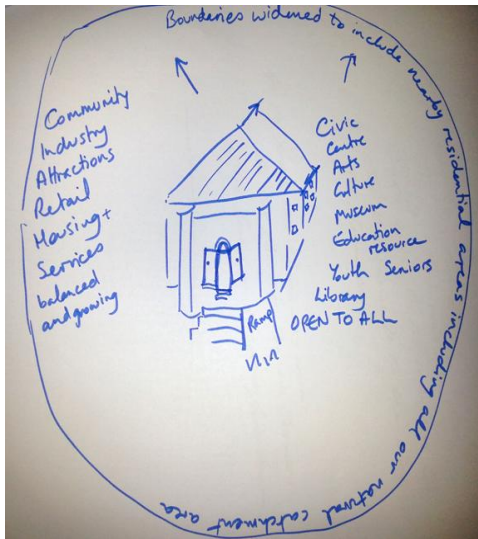 Boundaries widened to include nearby residential areas including all our natural catchment area
Community
Industry
Attractions
Retail
Housing +
Services
balanced
and growing
Civic
Centre
Arts
Culture
Museum
Education
resource
Youth Seniors
Library
OPEN TO ALL
Ramp